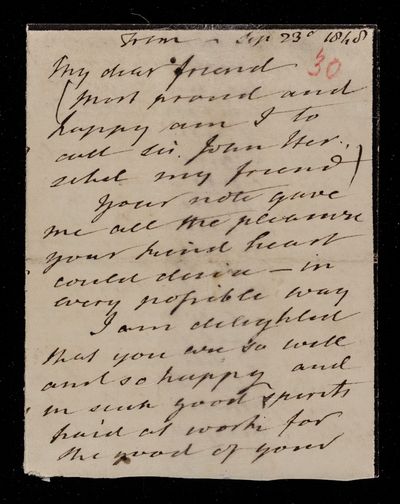 Trim - Sep 23d 1848
30
My dear friend
(Most proud and
happy am I to
call Sir John Her-
schel my friend)
Your note gave
me all the pleasure
your kind heart
could desire - in
every possible way
I am delighted
that you are so well
and so happy and
in such good spirits
hard at work for
the good of your